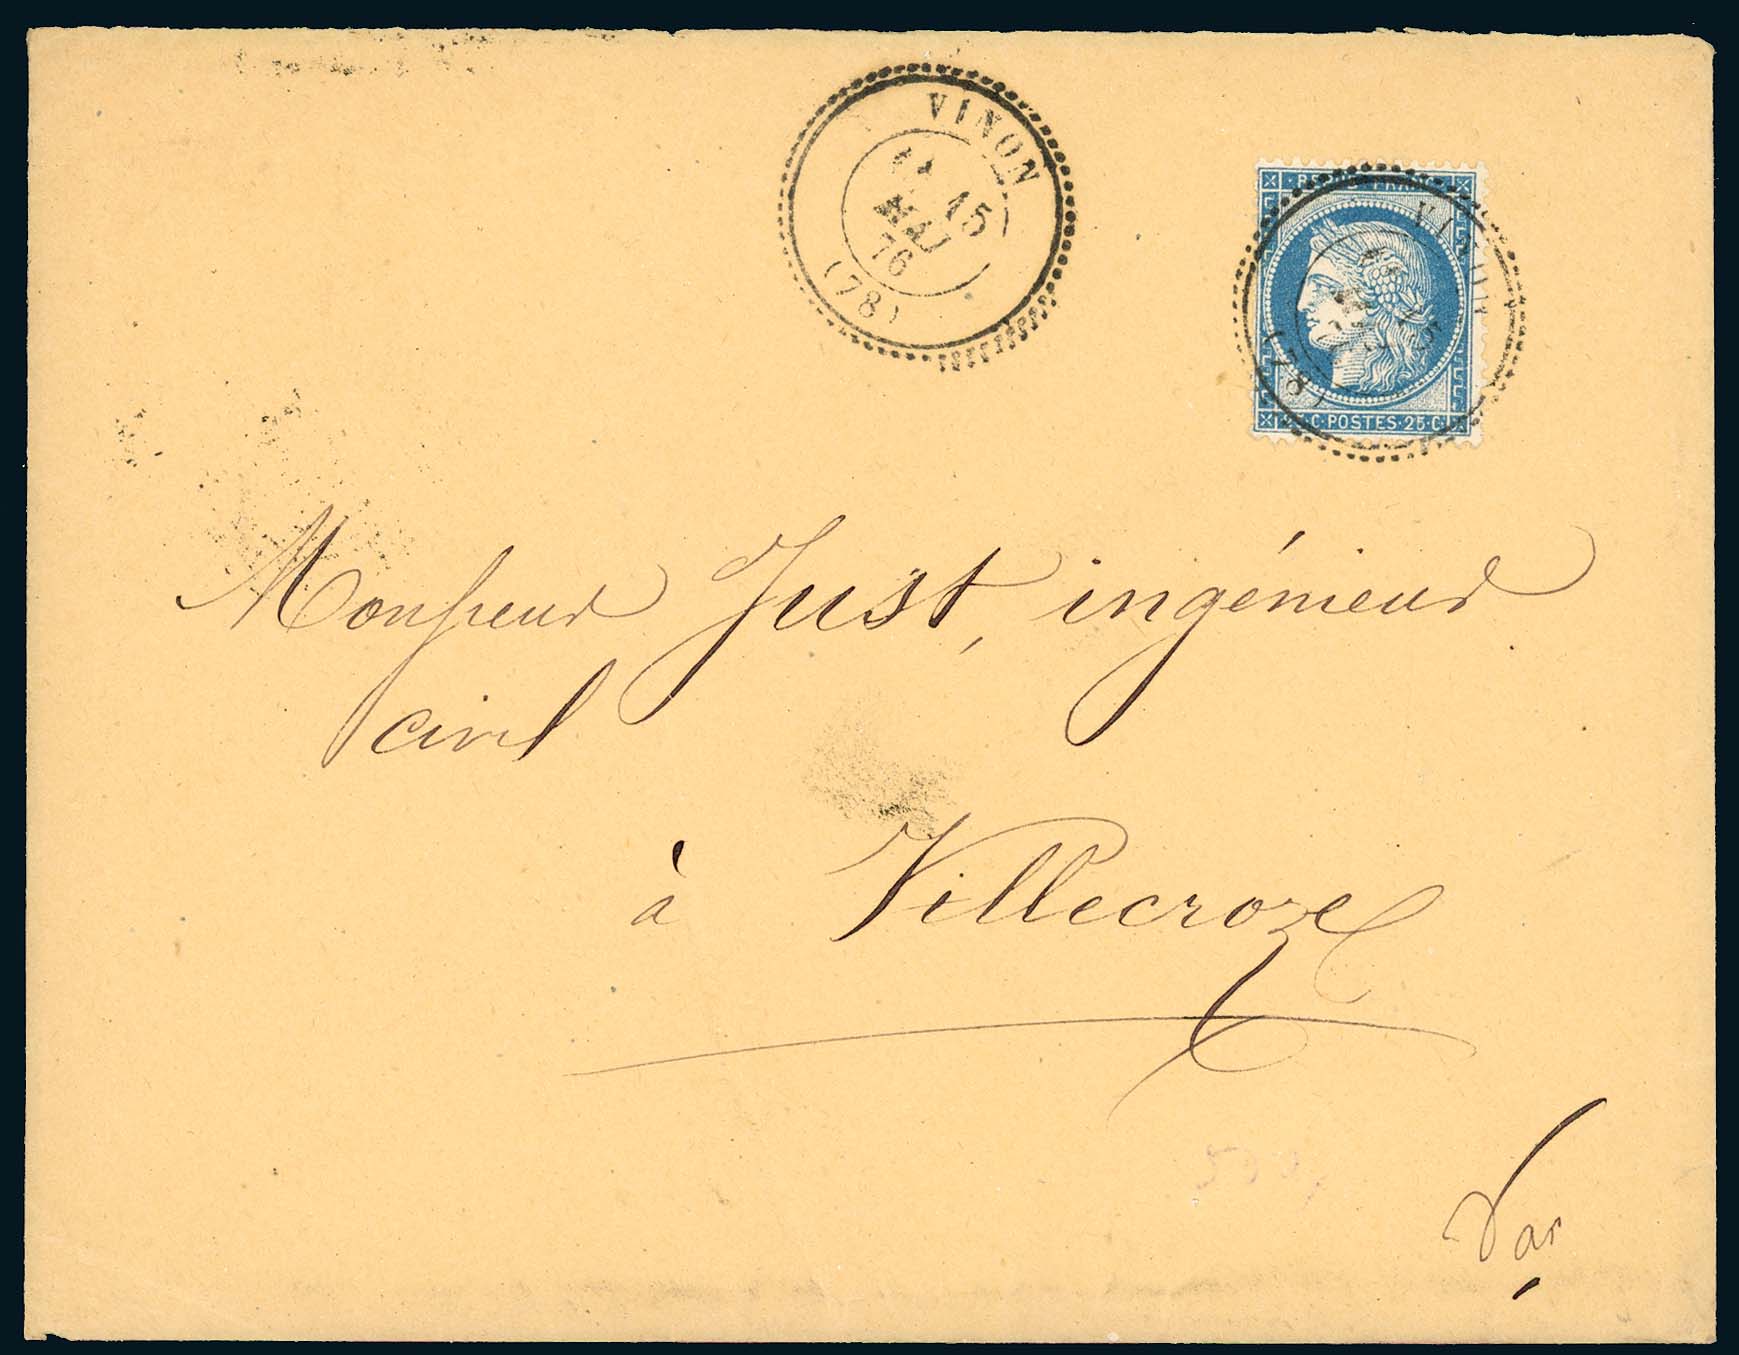 VINON
15
MAI
76
(78)
REPUB·FRANC
VINON
15
(78)
25·C·POSTES·25·C
Monsieur Just, ingénieur
civil
à Villecroze
Var